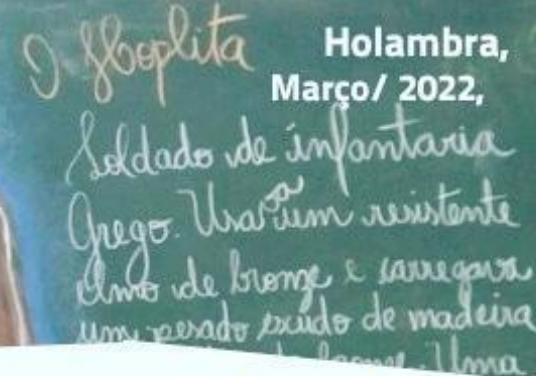 O Hoplita
Holambra,
Março/ 2022,
Soldado de infantaria
Grego. Usava um resistente
elmo de bronze e carregava
um pesado escudo de madeira
bronze. Uma